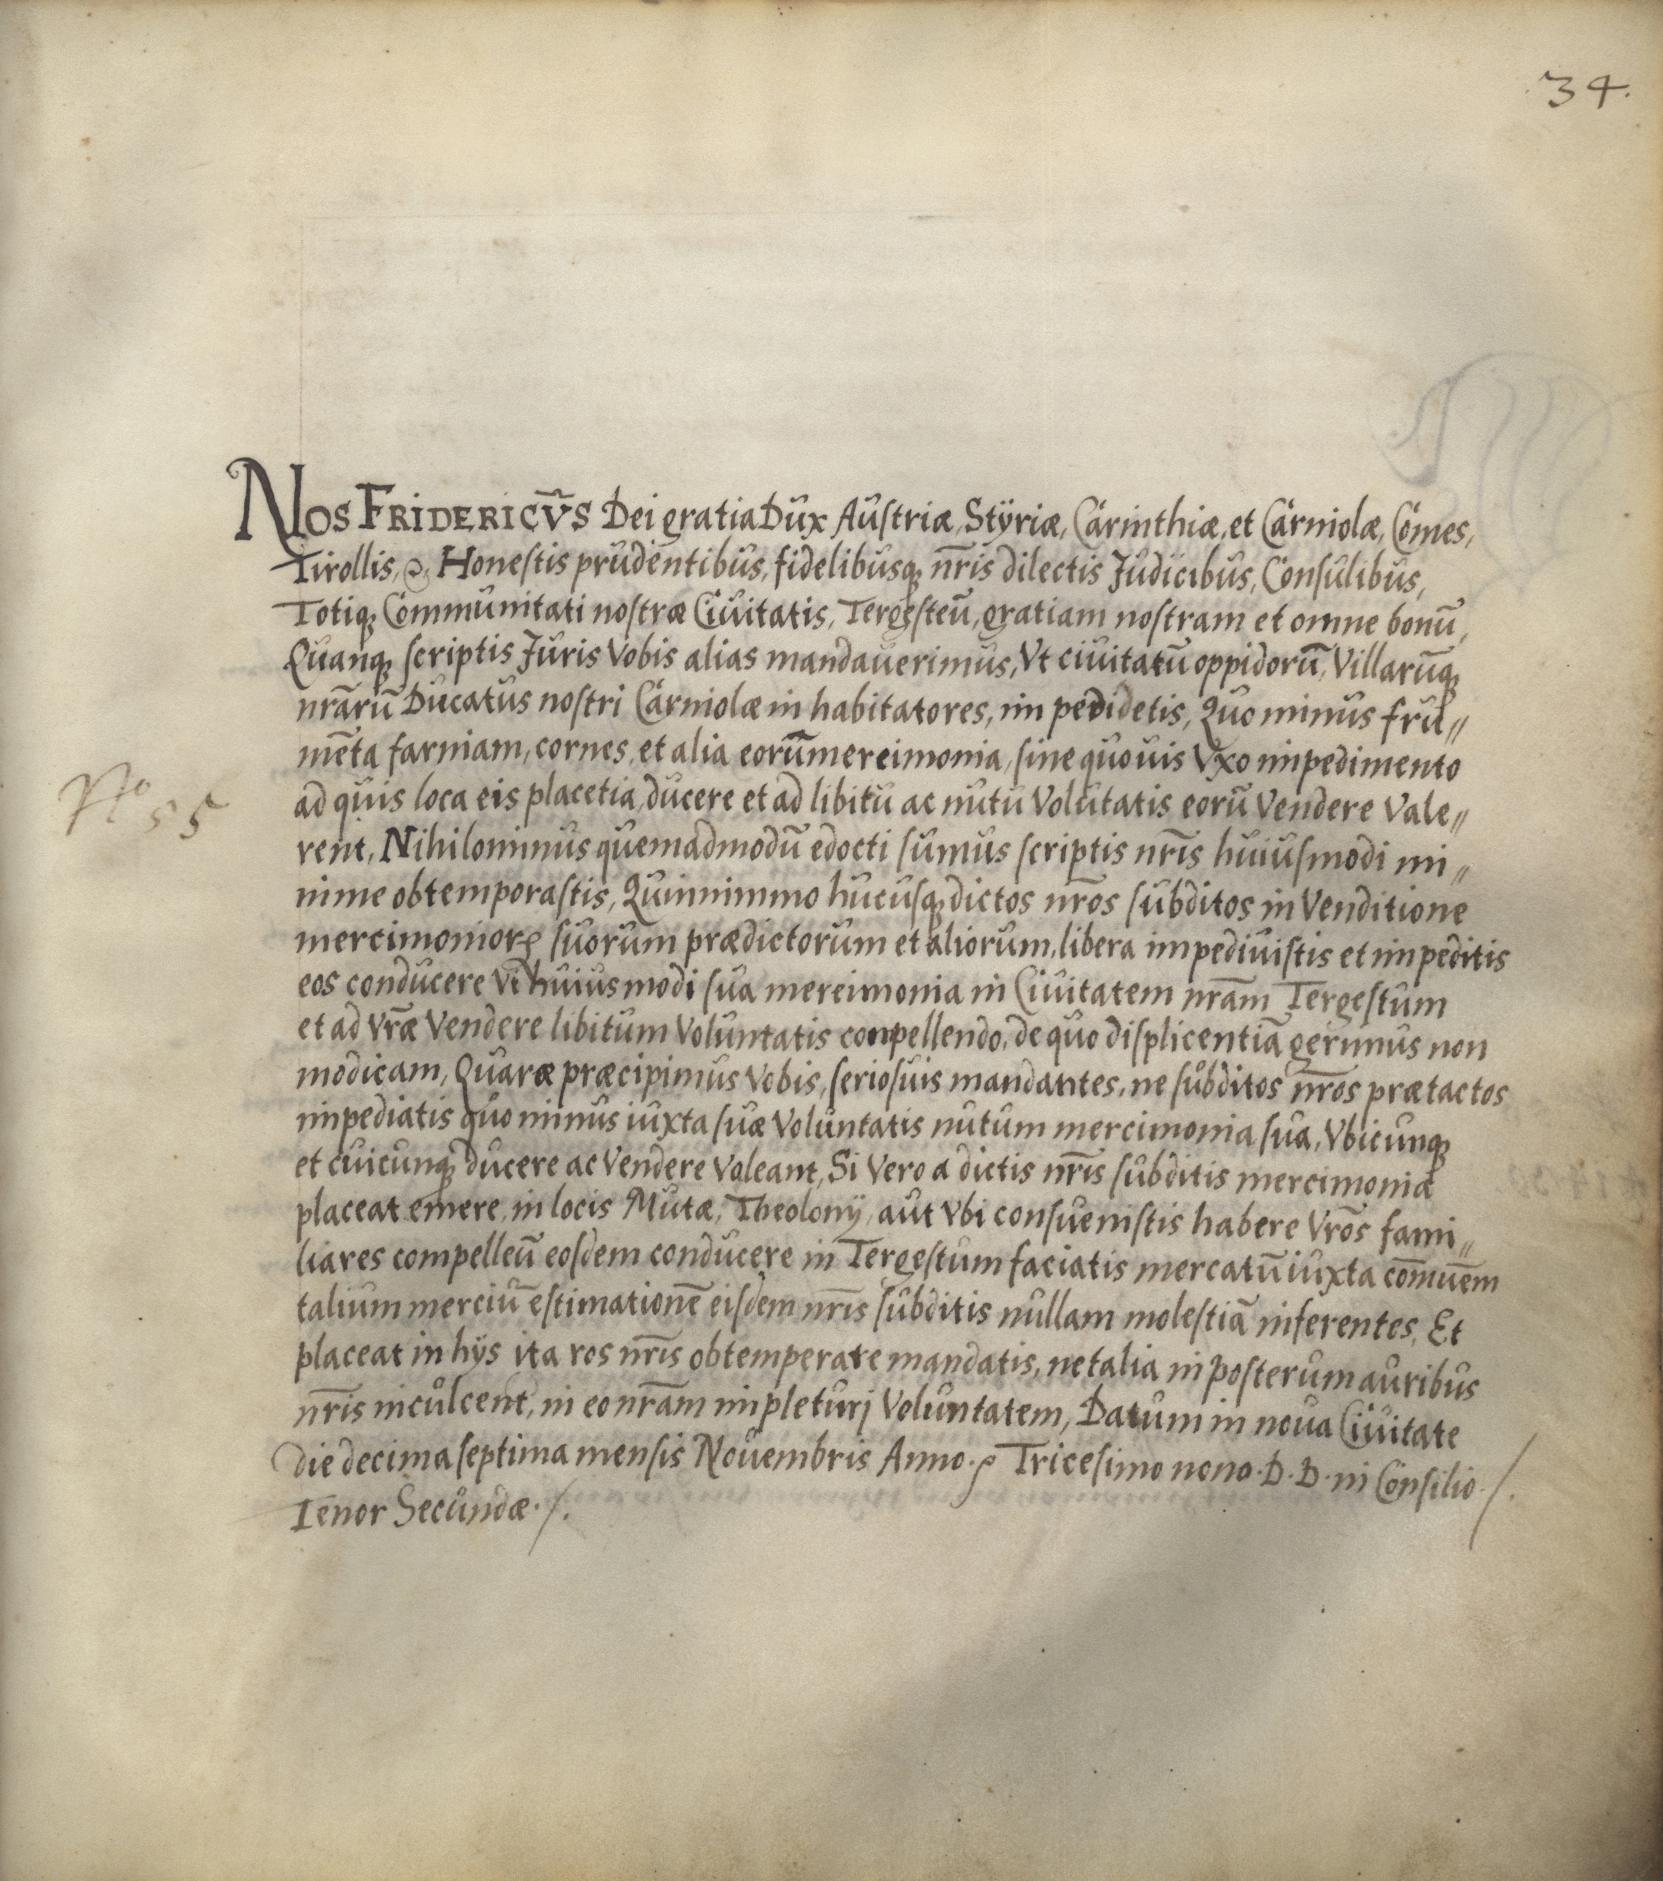 34.
NOS FRIDERICV̄S Dei gratia Dux Austriæ, Stÿriæ, Carinthiæ, et Carniolæ, Comes,
Tirollis, &, Honestis prudentibus, fidelibusq; nr̄is dilectis Judicibus, Consulibus,
Totiq; Communitati nostræ Ciuitatis, Tergesteū, gratiam nostram et omne bonū,
Quanq; scriptis Juris Vobis alias mandauerimus, Vt ciuitatū oppidorū, Villarūq;
nrārū Ducatus nostri Carniolæ in habitatores, im pedidetis, Quo minus fru〃
mēta farniam, cornes, et alia eorūmereimonia, sine quouis Vxo impedimento
ad quis loca eis placetia, ducere et ad libitū ac nutū Volūtatis eorū Vendere Vale〃
rent, Nihilominus quemadmodū edocti sumus scriptis nr̄is huiusmodi mi〃
nime obtemporastis, Quinnimmo hucusq; dictos nr̄os subditos in Venditione
mercimonior; suorum prædictorum et aliorum, libera impediuistis et impeditis
eos conducere Vt huiusmodi sua mereimonia in Ciuitatem nrām Tergestum
et ad Vrǣ Vendere libitum Voluntatis conpellendo, de quo displicentiā gerimus non
modicam, Quaræ præcipimus Vobis, seriosuis mandantes, ne subditos nr̄os prætactos
impediatis quo minus iuxta suæ Voluntatis nutum mercimonia sua, Vbicunq;
et cuicunq; ducere ac Vendere Voleant, Si Vero a dictis nr̄is subditis mercimonia
placeat emere, in locis Mutæ, Theolonÿ, aut Vbi consueuistis habere Vrōs fami〃
liares compelleū eosdem conducere in Tergestum faciatis mercatū iuxta com̄uēm
talium merciū estimationē eisdem nr̄is subditis nullam molestiā inferentes, Et
placeat in hÿs ita ros nr̄is obtemperare mandatis, ne talia in posterum auribus
nr̄is inculcent, in eo nrām impleturj Voluntatem, Datum in noua Ciuitate
die decima septima mensis Nouembris Anno. Tricesimo nono. D. D. in Consilio ./.
Tenor Secundæ ./.
No 55